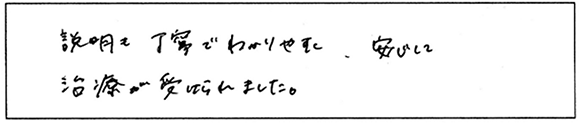 説明も丁寧でわかりやすく、安心して
治療が受けられました。